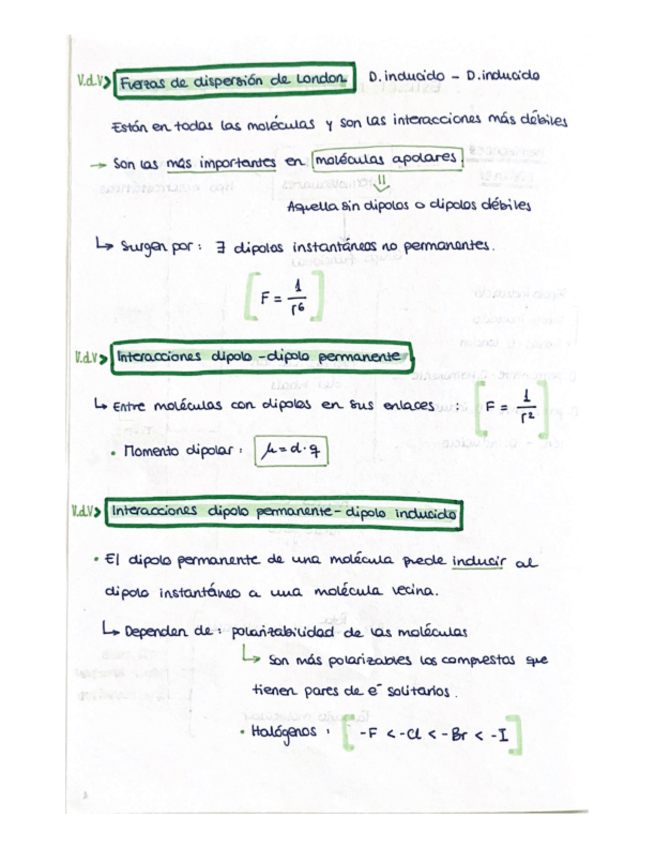 V.d.V> Fuerzas de dispersión de London. D.inducido - D.inducido
Están en todas las moléculas y son las interacciones más débiles
→ Son las más importantes en moléculas apolares.
⇓
Aquella sin dipolos o dipolos débiles
↳ Surgen por: ∃ dipolos instantáneos no permanentes.
[F = 1/r⁶]
V.d.V> Interacciones dipolo-dipolo permanente
↳ Entre moléculas con dipolos en sus enlaces : [F = 1/r²]
• Momento dipolar: μ = d·q
V.d.V> Interacciones dipolo permanente-dipolo inducido
• El dipolo permanente de una molécula puede inducir al
dipolo instantáneo a una molécula vecina.
↳ Dependen de: polarizabilidad de las moléculas
↳ Son más polarizables los compuestos que
tienen pares de e⁻ solitarios.
• Halógenos: [-F < -Cl < -Br < -I]